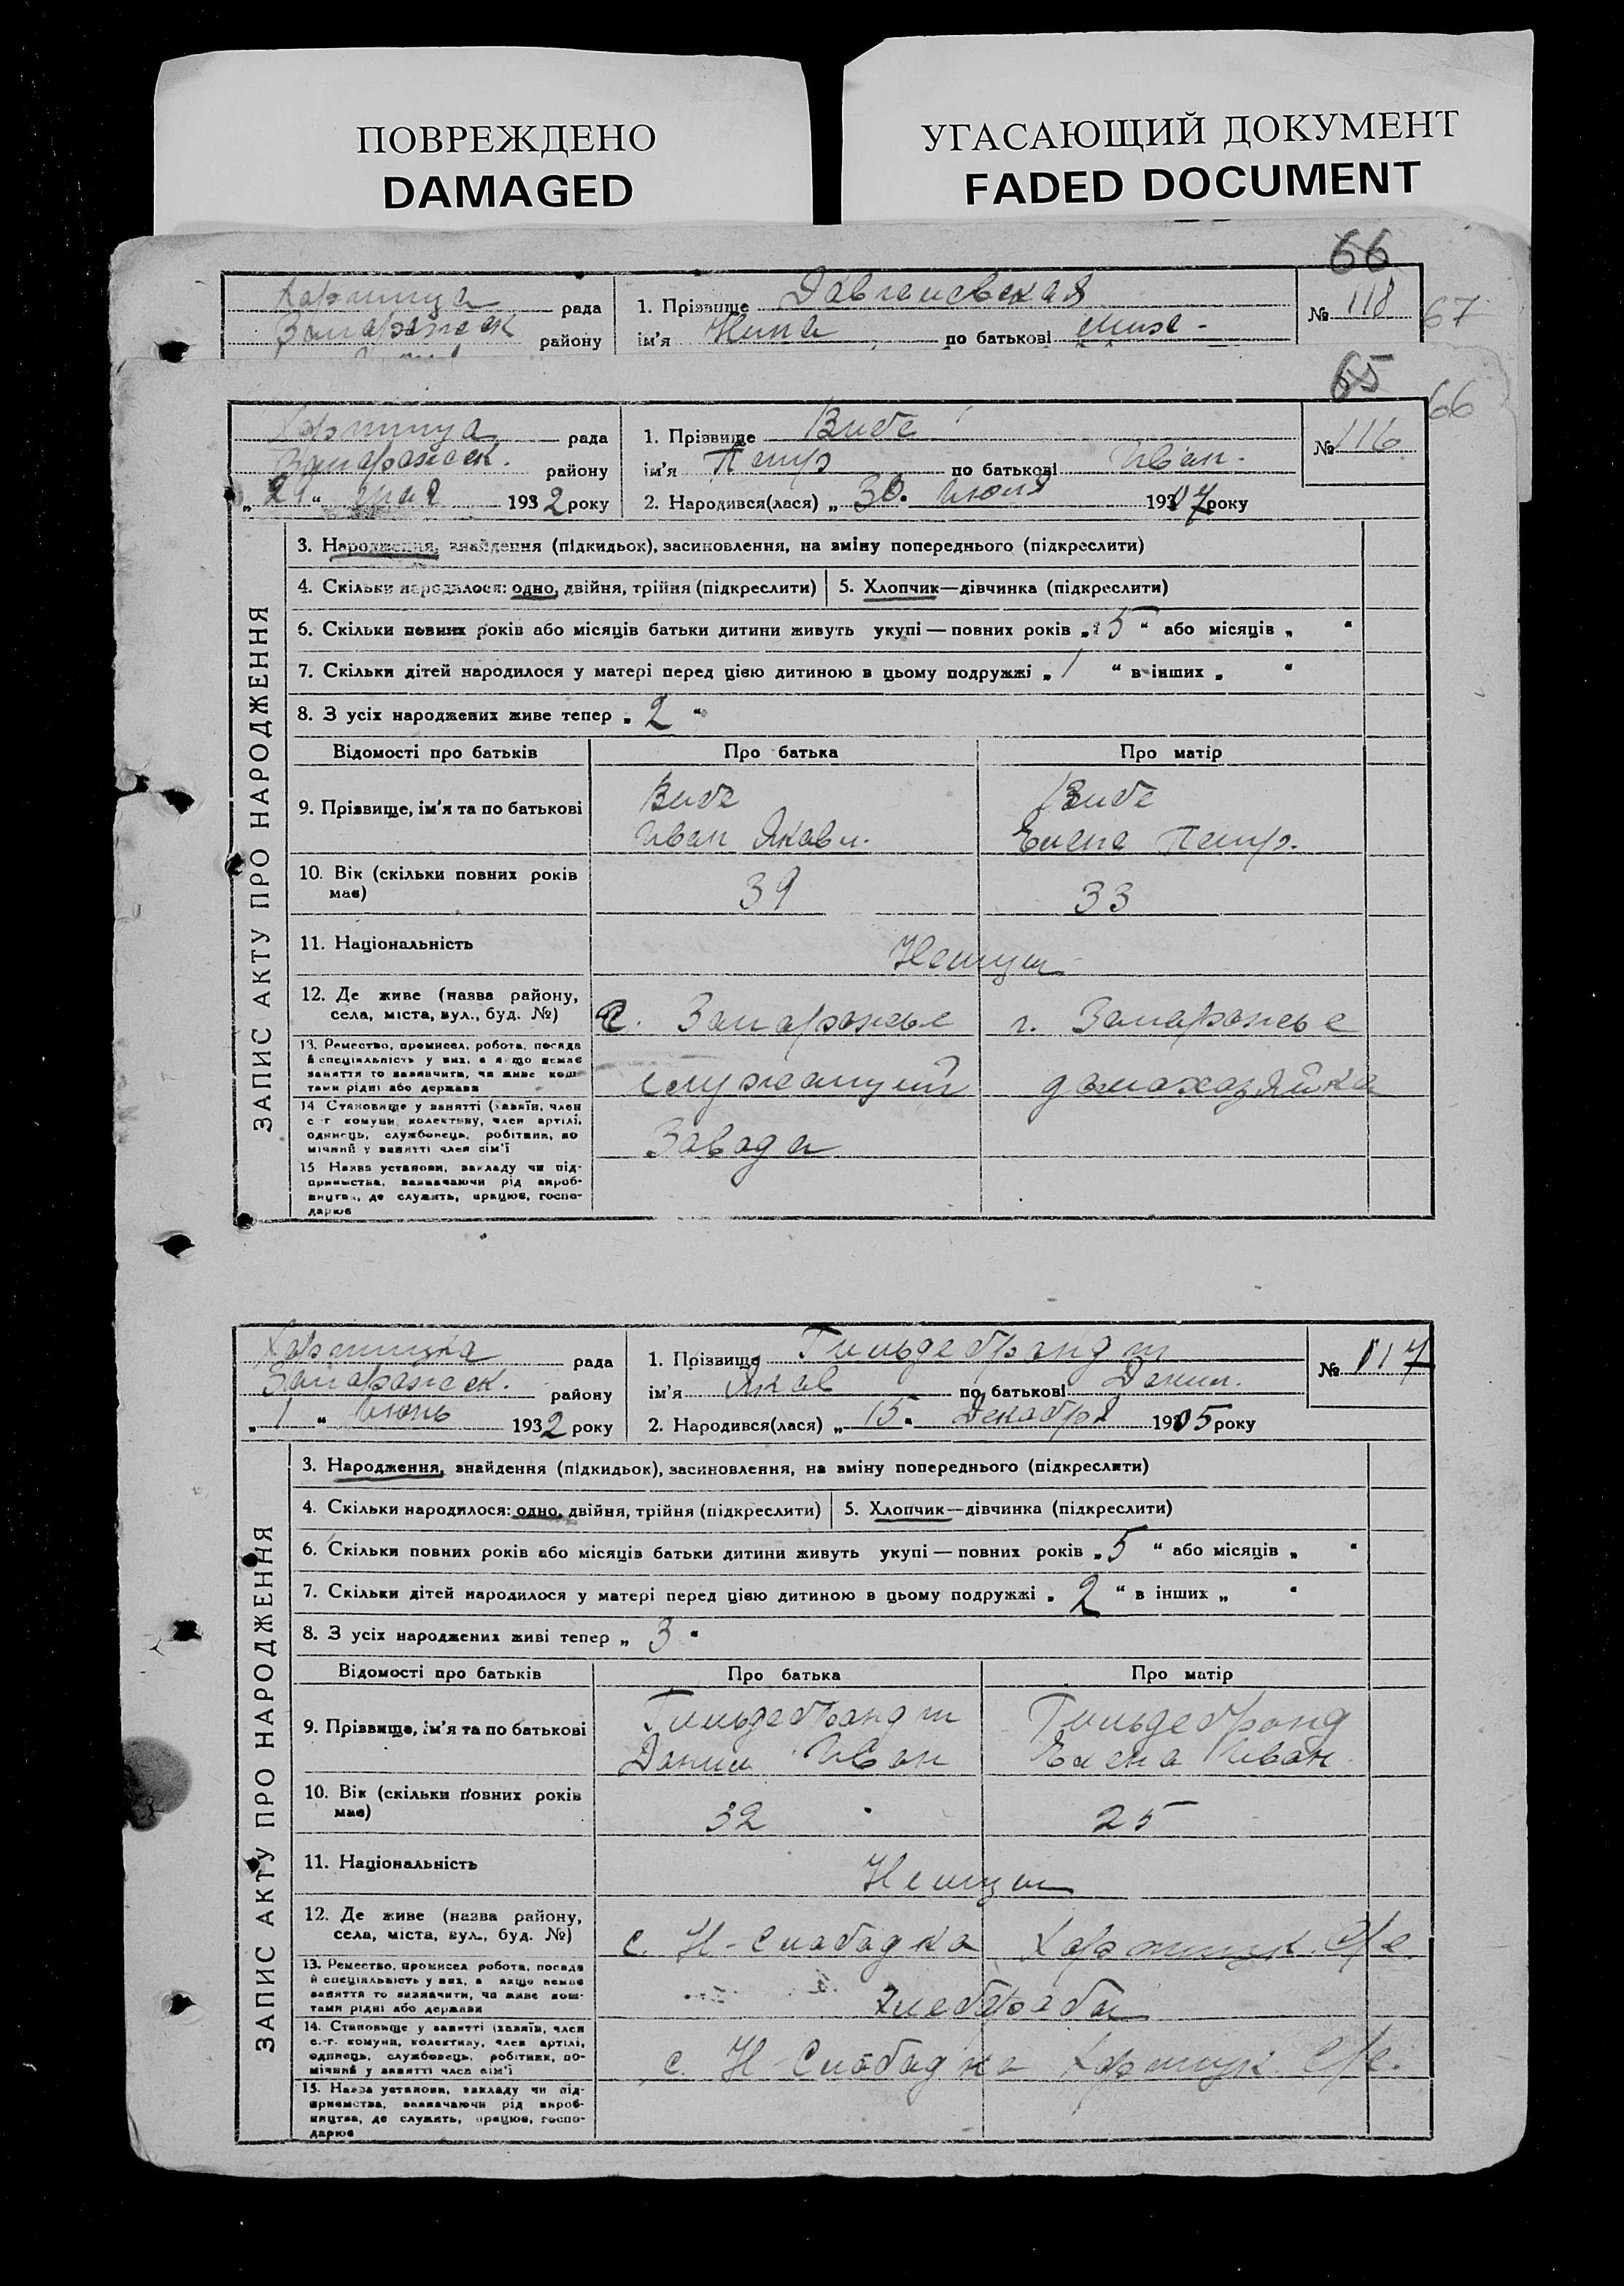 ПОВРЕЖДЕНО
DAMAGED
УГАСАЮЩИЙ ДОКУМЕНТ
FADED DOCUMENT
66
67
Хортица рада
Запорожск району
1. Прізвище
ім'я Нина по батькові Мих-
№ 118
65
66
Хортица рада
Запорожск. району
"21" мая 1932 року
1. Прізвище Вибе
ім'я Петр по батькові Иван.
2. Народився(лася) „30" июля 1907 року
№ 116
ЗАПИС АКТУ ПРО НАРОДЖЕННЯ
3. Народження, знайдення (підкидьок), засиновлення, на зміну попереднього (підкреслити)
4. Скільки народилося: одно, двійня, трійня (підкреслити)
5. Хлопчик—дівчинка (підкреслити)
6. Скільки повних років або місяців батьки дитини живуть укупі — повних років „5" або місяців „ "
7. Скільки дітей народилося у матері перед цією дитиною в цьому подружжі „1" в інших „ "
8. З усіх народжених живе тепер „2"
Відомості про батьків Про батька Про матір
9. Прізвище, ім'я та по батькові
Вибе
Иван Яковл.
Вибе
Елена Петр.
10. Вік (скільки повних років має)
39 33
11. Національність
Немцы
12. Де живе (назва району, села, міста, вул., буд. №)
г. Запорожье г. Запорожье
13. Ремество, промисел, робота, посада й спеціяльність у них, а якщо немає заняття то зазначити, чи живе коштами рідні або держави
служащий домохозяйка
14 Становище у занятті (хазяїн, член с.-г. комуни, колективу, член артілі, одинець, службовець, робітник, помічний у занятті член сім'ї
Завода
15 Назва установи, закладу чи підприємства, зазначаючи рід виробництва, де служить, працює, господарює
Хортицка рада
Запорожск. району
„1" Июнь 1932 року
1. Прізвище Гильдебрандт
ім'я Яков по батькові Данил.
2. Народився(лася) „15" Декабря 1905 року
№ 117
ЗАПИС АКТУ ПРО НАРОДЖЕННЯ
3. Народження, знайдення (підкидьок), засиновлення, на зміну попереднього (підкреслити)
4. Скільки народилося: одно, двійня, трійня (підкреслити)
5. Хлопчик—дівчинка (підкреслити)
6. Скільки повних років або місяців батьки дитини живуть укупі — повних років „5" або місяців „ "
7. Скільки дітей народилося у матері перед цією дитиною в цьому подружжі „2" в інших „ "
8. З усіх народжених живі тепер „3"
Відомості про батьків Про батька Про матір
9. Прізвище, ім'я та по батькові
Гильдебрандт
Данил Иван
Гильдебранд
Елена Иван.
10. Вік (скільки повних років має)
32 25
11. Національність
Немцы
12. Де живе (назва району, села, міста, вул., буд. №)
с. Н-Слободка Хортицк. С/с.
13. Ремество, промисел робота, посада й спеціяльність у них, а якщо немає заняття то визначити, чи живе коштами рідні або держави
хлеборобы
14. Становище у занятті (хазяїн, член с.-г. комуни, колективу, член артілі, одинець, службовець, робітник, помічний у занятті член сім'ї
с. Н Слободка Хортицк. С/с.
15. Назва установи, закладу чи підприємства, зазначаючи рід виробництва, де служить, працює, господарює